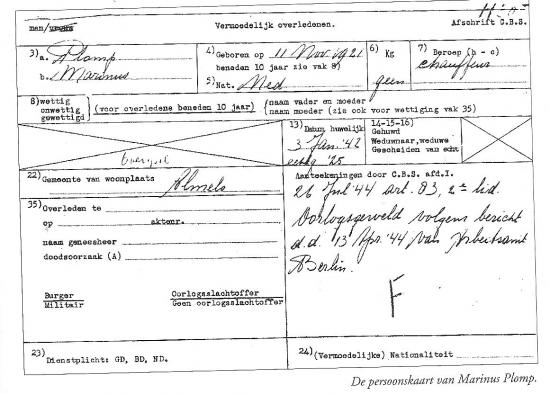 man/vrouw Vermoedelijk overledenen. Afschrift C.B.S.
3) a. Plomp
b. Marinus
4) Geboren op 11 Nov. 1921
beneden 10 jaar zie vak 8)
5) Nat. Ned
6) Kg
geen
7) Beroep (b - c)
chauffeur
8) wettig
onwettig
gewettigd
(voor overledene beneden 10 jaar)
(naam vader en moeder
(naam moeder (zie ook voor wettiging vak 35)
13) Datum huwelijk
3 Jan. '42
echtg '25
14-15-16)
Gehuwd
Weduwnaar, weduwe
Gescheiden van echt
22) Gemeente van woonplaats Almelo
35) Overleden te
op aktenr.
naam geneesheer
doodsoorzaak (A)
Burger Oorlogsslachtoffer
Militair Geen oorlogsslachtoffer
Aanteekeningen door C.B.S. afd.I.
26 Jul '44 art. 83, 2e lid.
Oorlogsgeweld volgens bericht
d.d. 13 Apr. '44 van Arbeitsamt
Berlin.
F
23) Dienstplicht: GD, BD, ND.
24) (Vermoedelijke) Nationaliteit
De persoonskaart van Marinus Plomp.